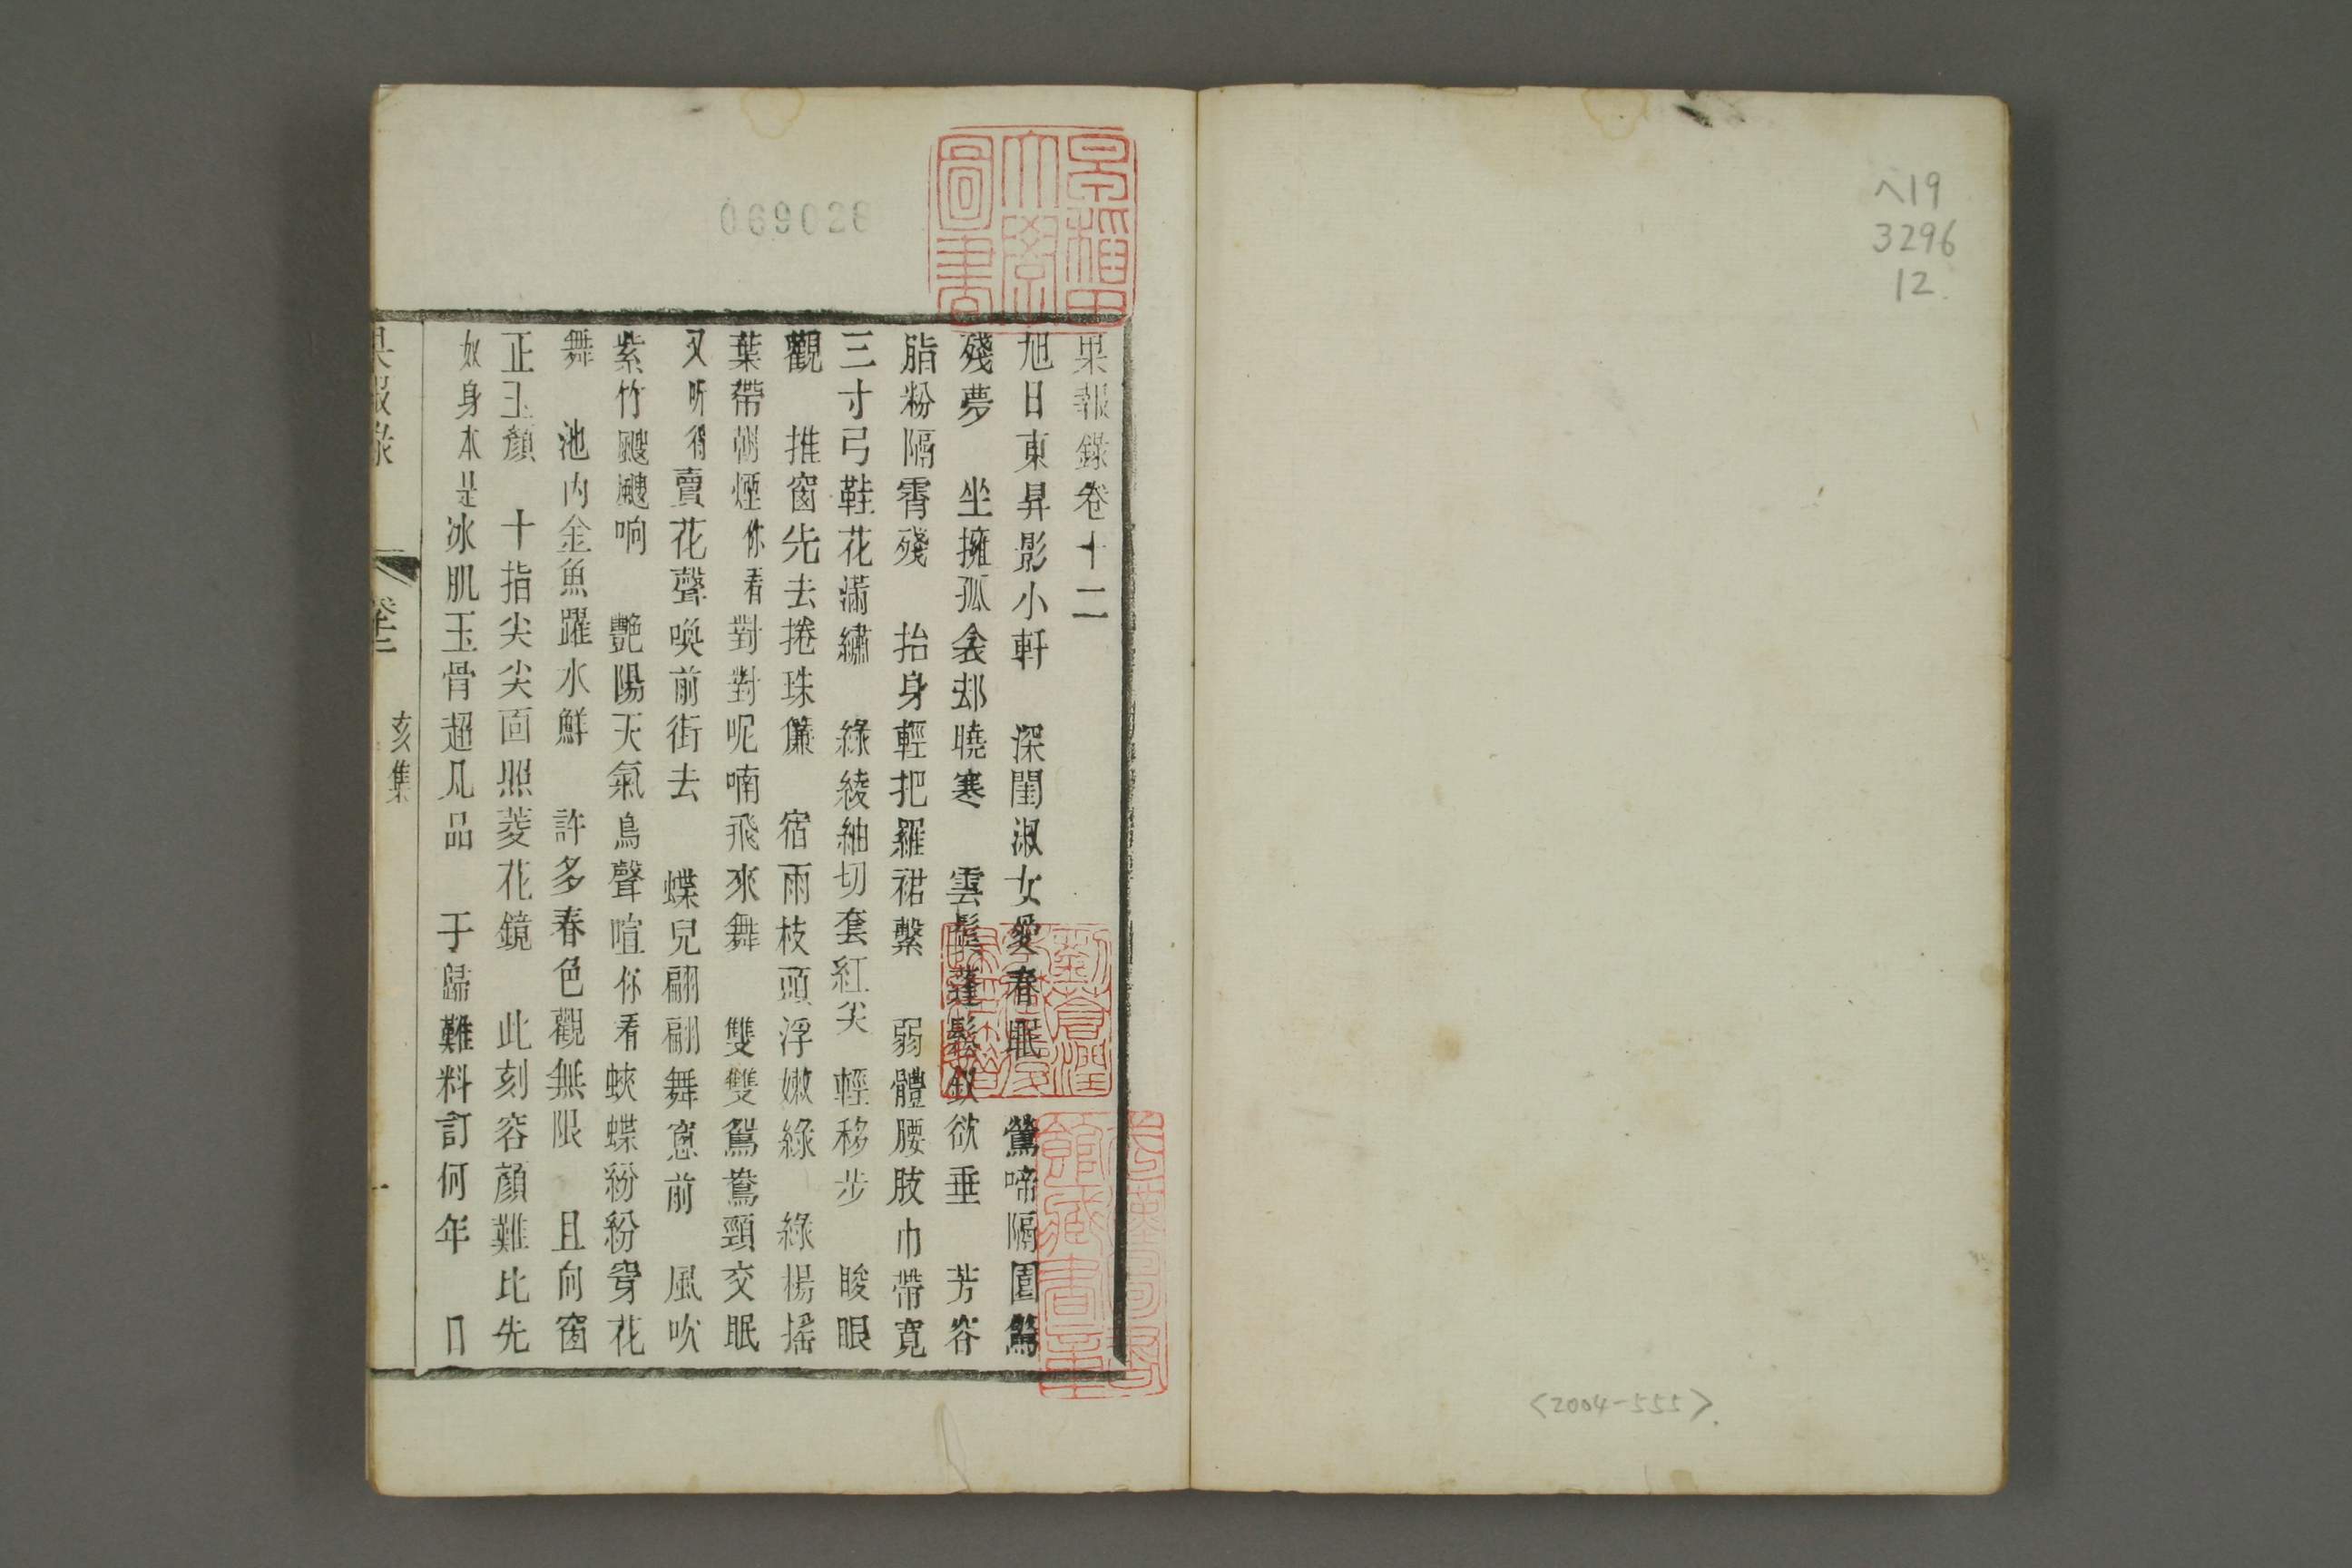 ヘ19
3296
12
<2004-555>
069028
早稻田
大學
圖書
果報錄卷十二
旭日東昇影小軒　深閨淑女愛春眠　鶯啼隔園驚
殘夢　坐擁孤衾却曉寒　雲鬓蓬鬆釵欲垂　芳容
脂粉隔宵殘　抬身輕把羅裙繫　弱體腰肢巾帶寬
三寸弓鞋花滿繡　綠綾紬切套紅尖　輕移步　睃眼
觀　推窗先去捲珠簾　宿雨枝頭浮嫩綠　綠楊搖
葉帶朝煙你看對對呢喃飛來舞　雙雙鴛鴦頸交眠
又听得賣花聲喚前街去　蝶兒翩翩舞窓前　風吹
紫竹颼颼响　艷陽天氣鳥聲喧你看蛺蝶紛紛穿花
舞　池内金魚躍水鮮　許多春色觀無限　且向窗
正玉顏　十指尖尖面照菱花鏡　此刻容顏難比先
奴身本是冰肌玉骨超凡品　于歸難料訂何年　日
果報錄
卷十二
亥集
一